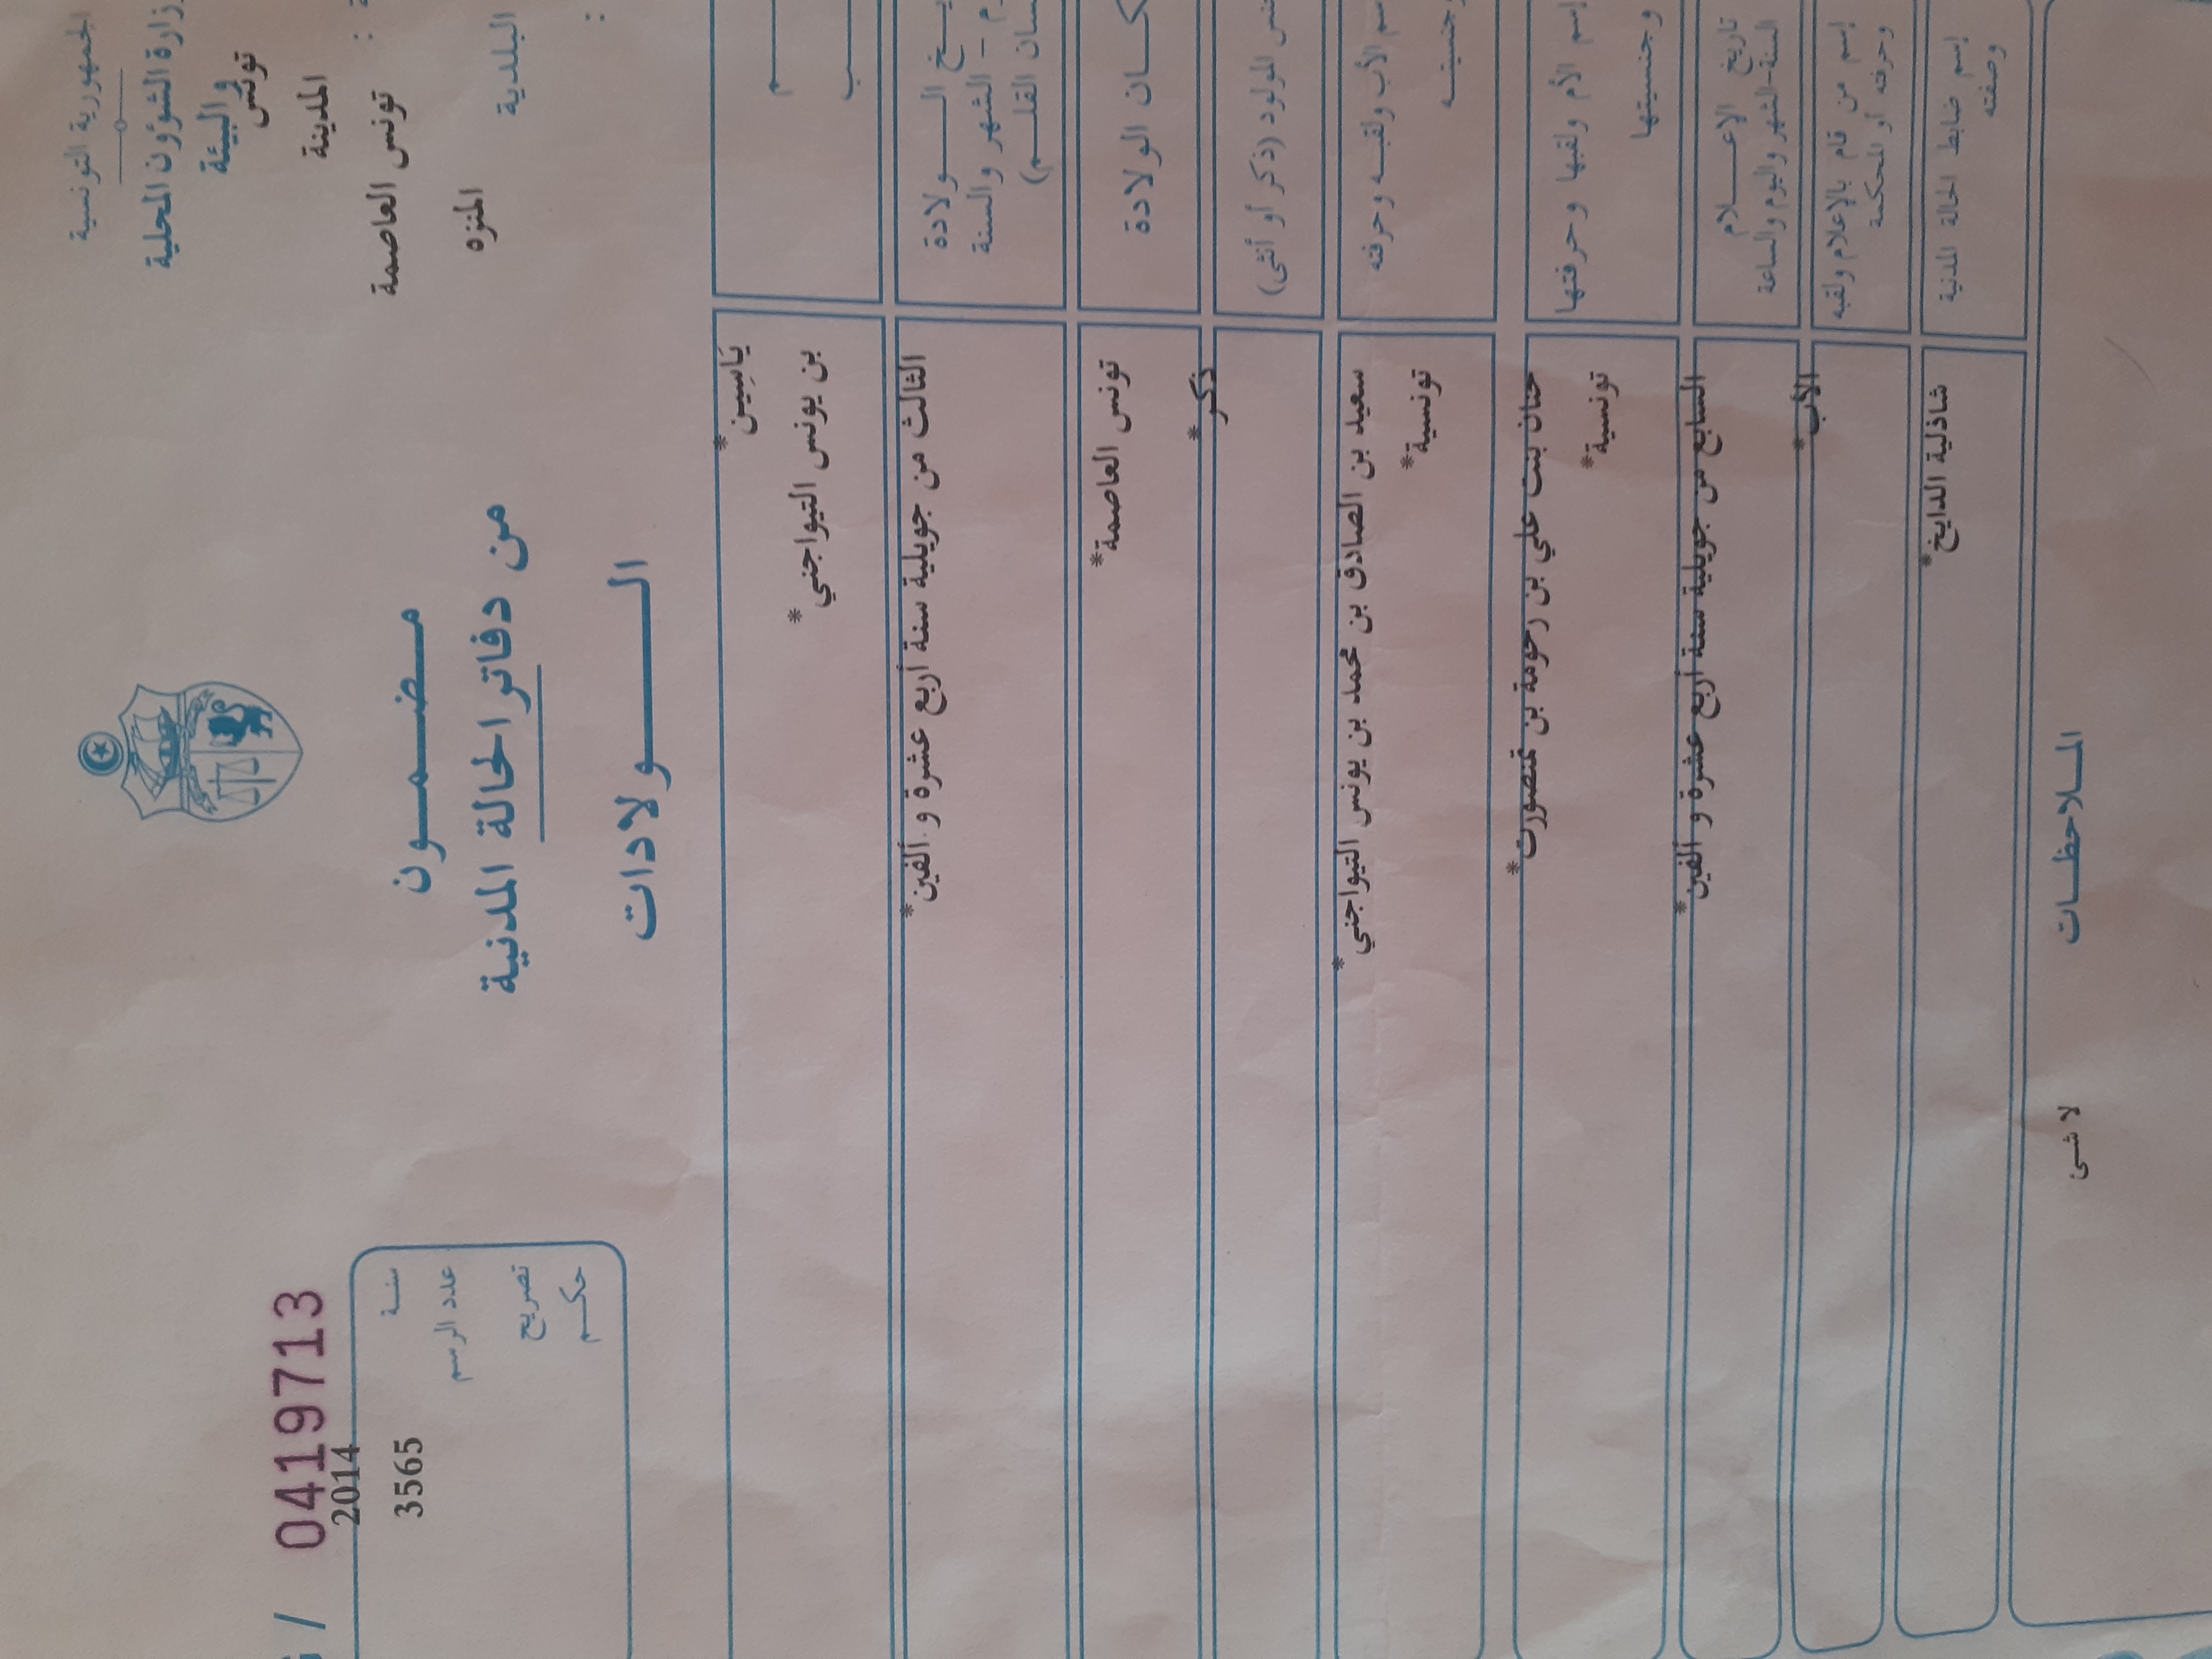 الجمهورية التونسية
وزارة الشؤون المحلية
والبيئة
تونس
المدينة
: تونس العاصمة
البلدية
المنزه
مضمون
من دفاتر الحالة المدنية
الولادات
/ 0419713
2014
سنة
3565
عدد الرسم
تصريح
حكم
يَاسِين*
بن يونس التيواجني*
الولادة
الشهر والسنة
بلسان القلم)
الثالث من جويلية سنة أربع عشرة و ألفين*
مكان الولادة
تونس العاصمة*
جنس المولود (ذكر أو أنثى)
ذكر*
إسم الأب ولقبه وحرفته
وجنسيته
سعيد بن الصادق بن محمد بن يونس التيواجني*
تونسية*
إسم الأم ولقبها وحرفتها
وجنسيتها
حنان بنت علي بن رحومة بن تمنصورت*
تونسية*
تاريخ الإعلام
السنة-الشهر واليوم والساعة
السابع من جويلية سنة أربع عشرة و ألفين*
إسم من قام بالإعلام ولقبه
وحرفته أو المحكمة
الأب*
إسم ضابط الحالة المدنية
وصفته
شاذلية الدايخ*
الملاحظات
لا شئ